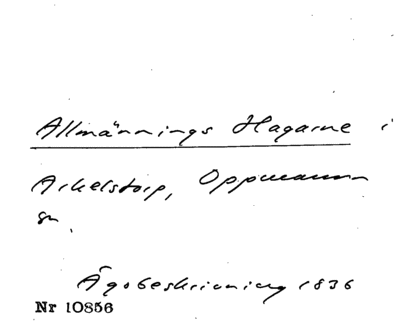 Allmännings Hagarne i
Arkelstorp, Oppmanna
sn.
Ägobeskrivning 1836
Nr 10856